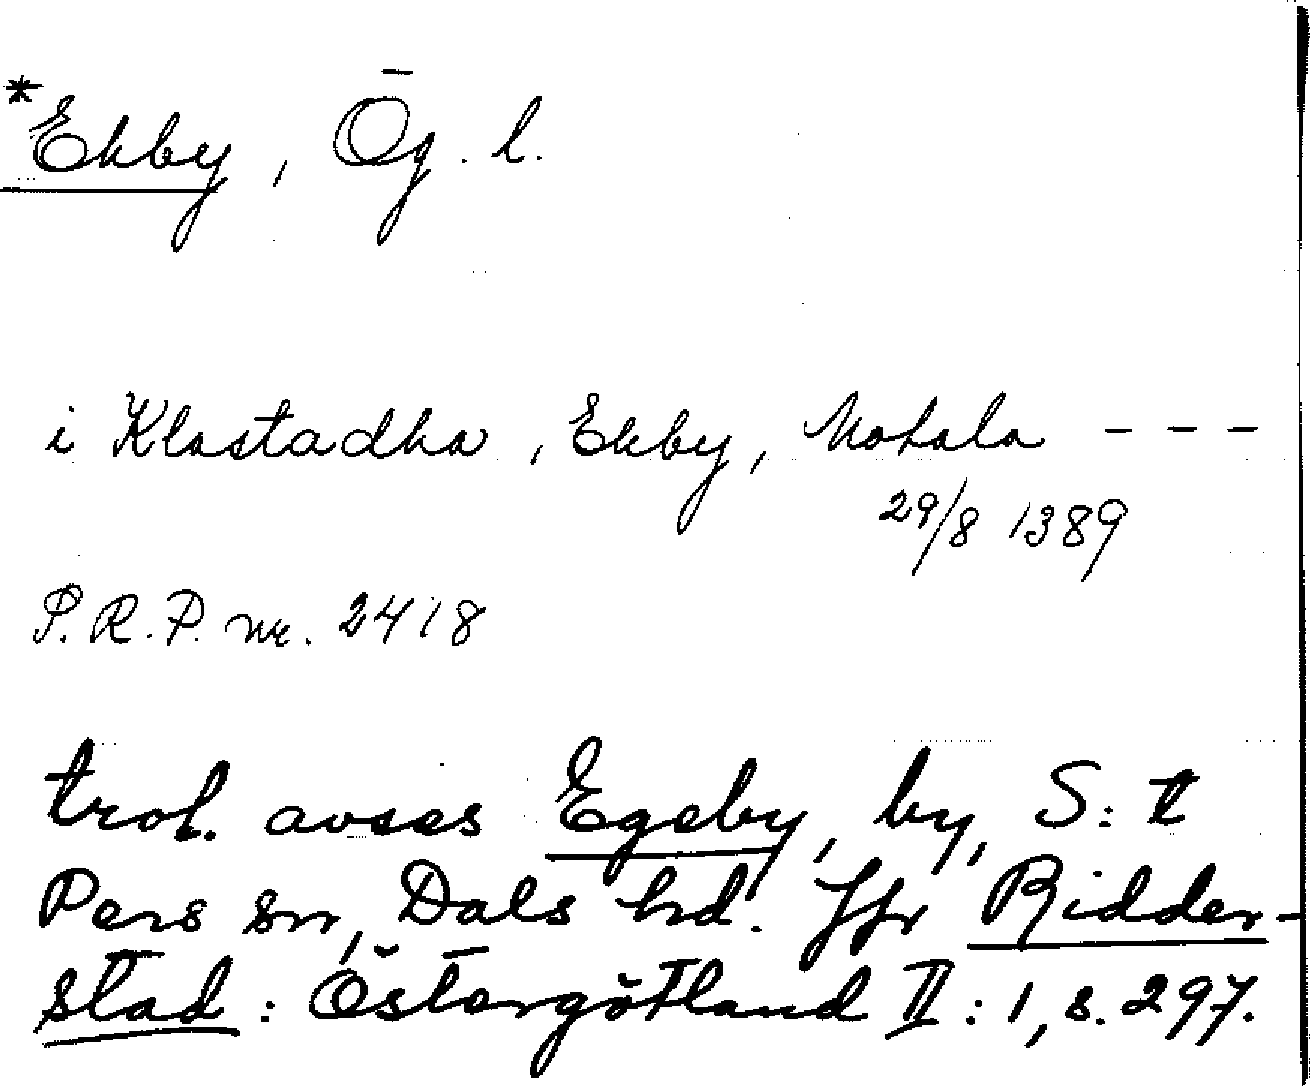 *Ekby, Ög. l.
i Klastadha, Ekby, Motala - - -
29/8 1389
S.R.P. nr. 2418
trol. avses Egeby, by, S:t
Pers sn, Dals hd. Jfr Ridder-
stad: Östergötland II:1, s. 297.